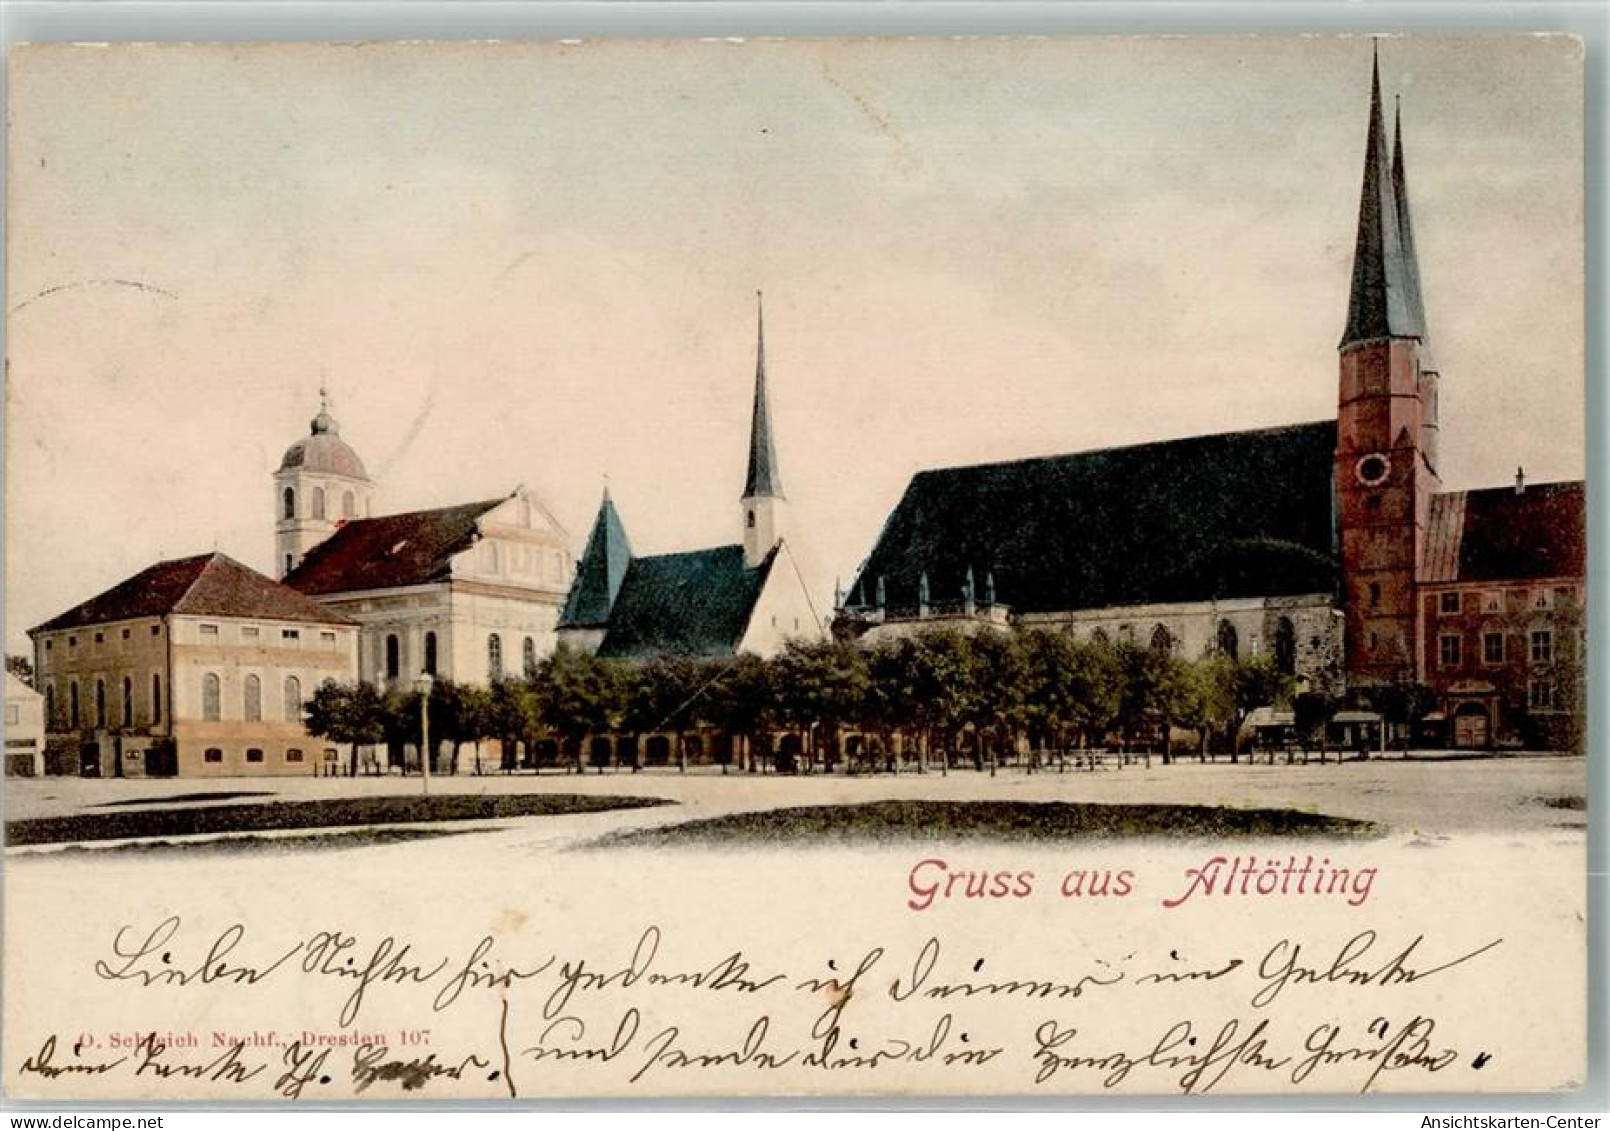 Gruss aus Altötting
Liebe Nichte hier gedenke ich Deiner im Gebete
und sende dir die Herzlichste Grüße.
O. Schleich Nachf., Dresden 107
deine Tante Th.
Ansichtskarten-Center